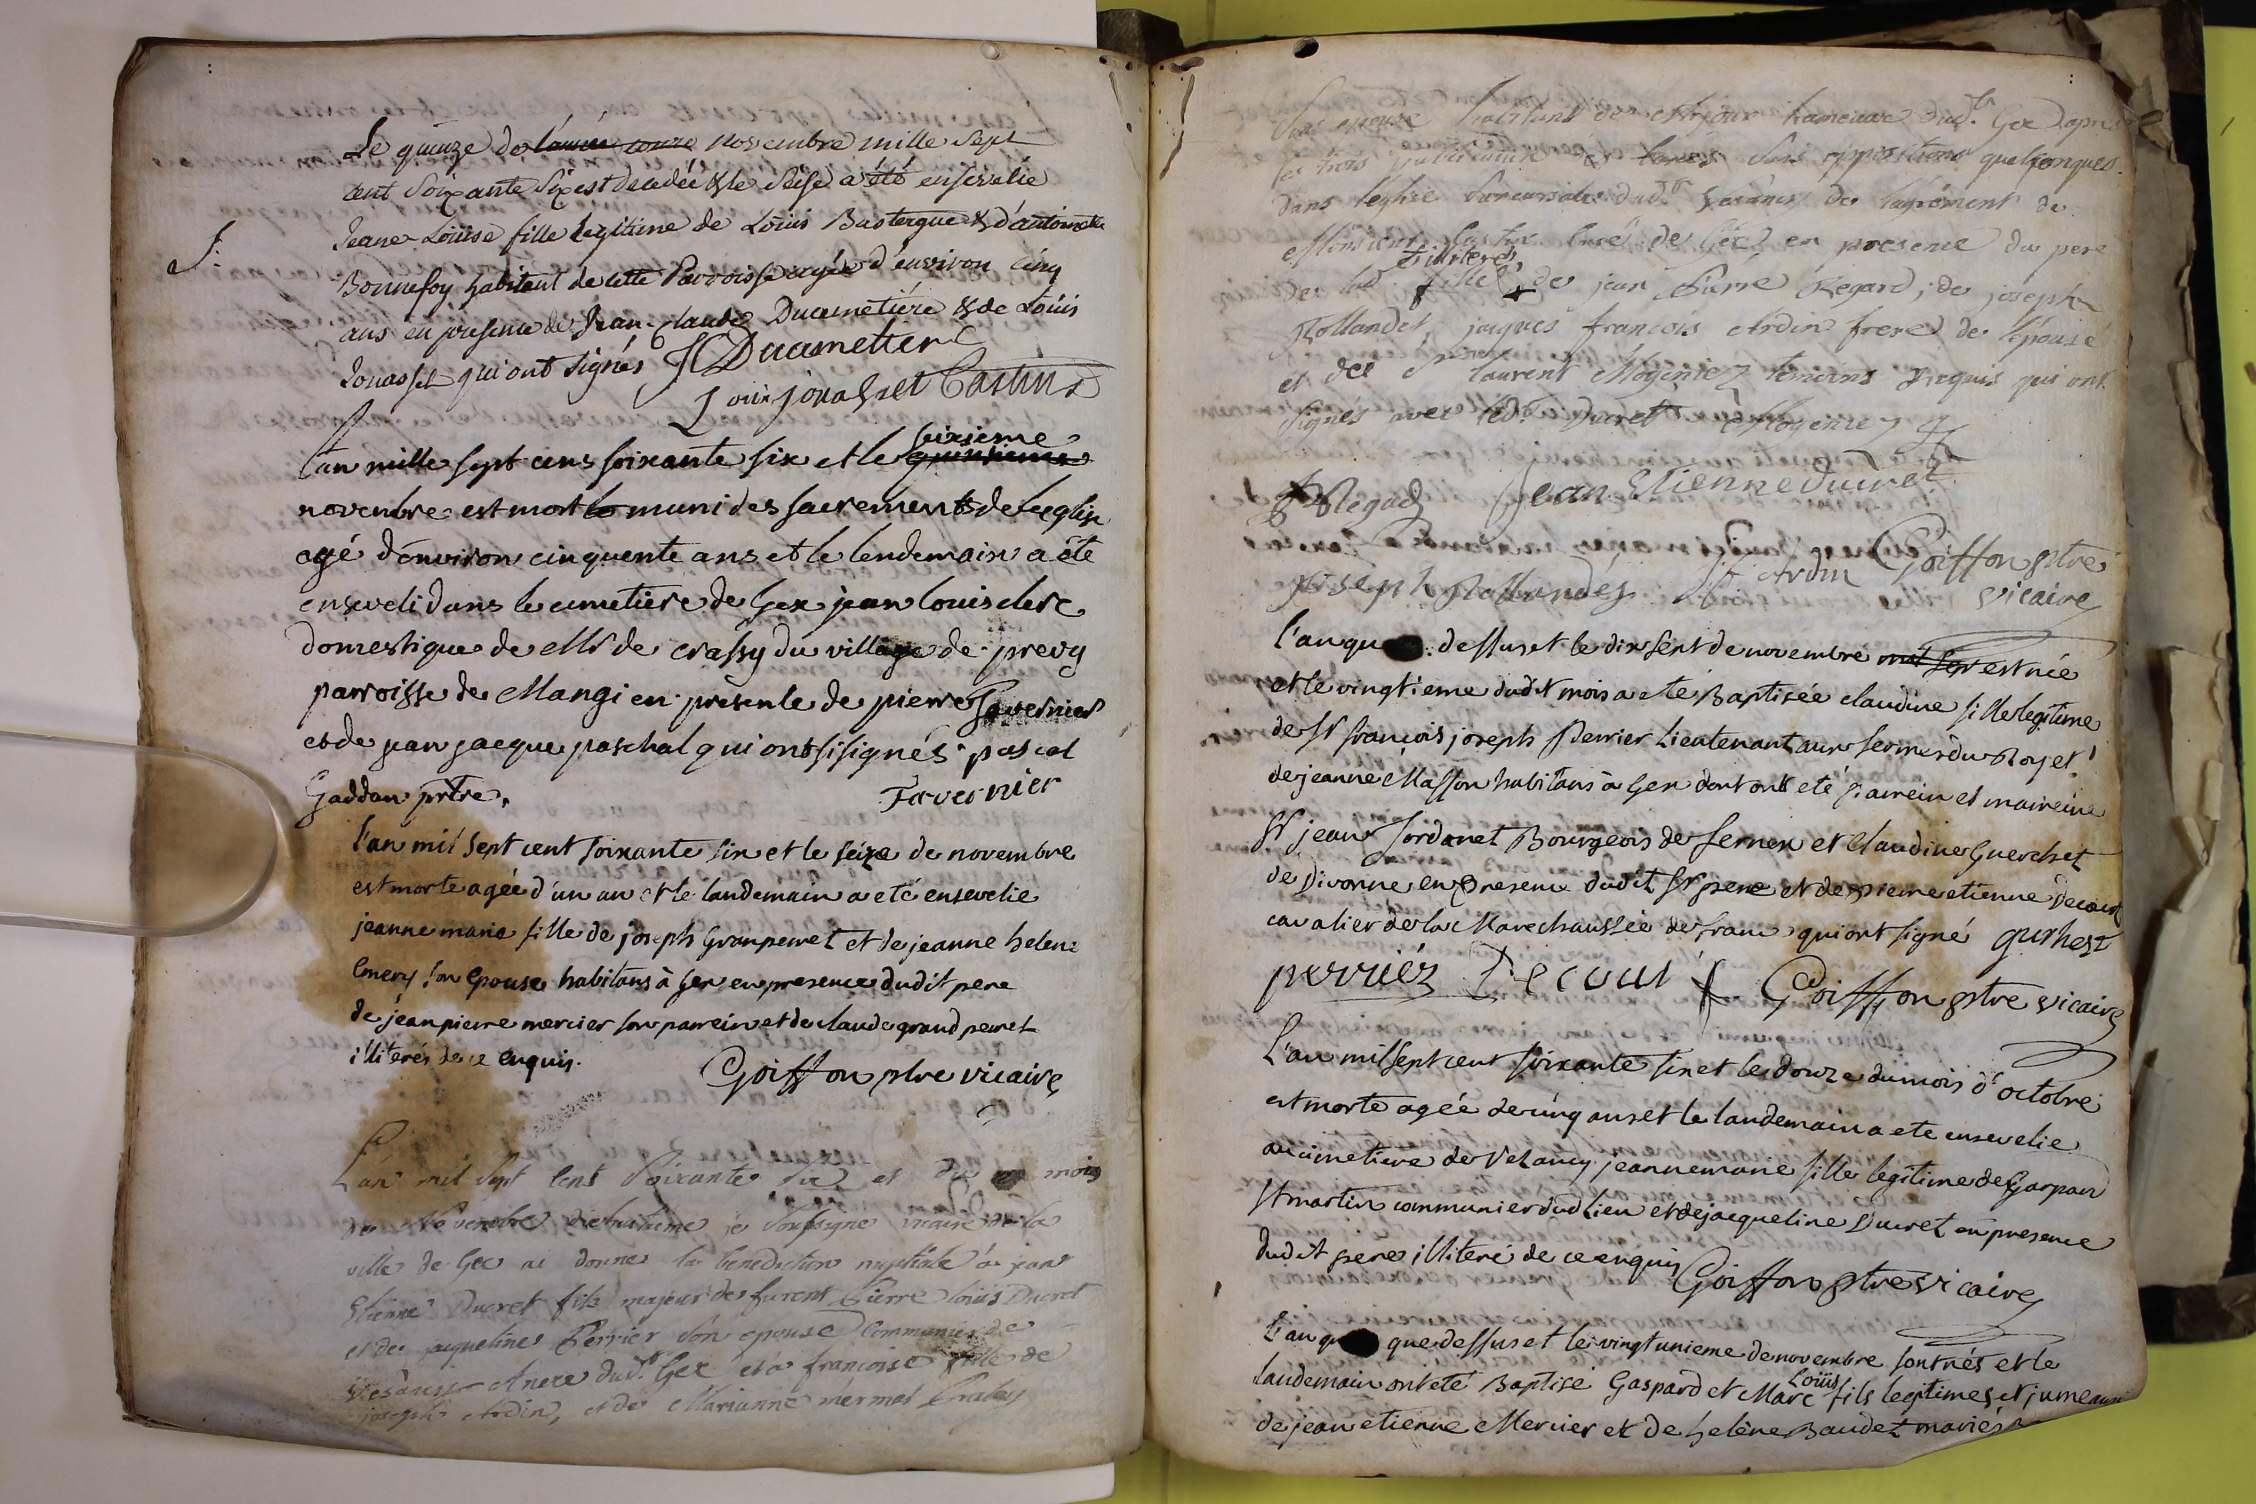 Le quinze de l'année conre novembre mille Sept
cent Soixante Six est decedée & le Seise a été ensevelie
Jeane-Loüise fille legitime de Loüis Bastergue & d'antoinette
J:
Bonnefoy habitant de cette Parroisse agée d'environ cinq
ans en presence de Jean-Claude Ducimetiére & de Loüis
Jouasset qui ont signés JC Ducimetiere
Louis jouasset Castin
L'an mille sept cens soixante six et le quinsieme seixieme
novembre est mort le muni des sacrements de leglise
agé d'environ cinquente ans et le lendemain a été
enseveli dans le cimetiere de Gex jean louis clerc
domestique de Mr de crassy du village de prevy
parroisse de Mangi en presence de pierre Tavernier
et de jean jacque paschal qui ont sisignés pascal
Gaddan prtre. Tavernier
l'an mil sept cent soixante six et le seize de novembre
est morte agée d'un an et le landemain a eté ensevelie
jeanne marie fille de joseph Granperret et de jeanne helene
Emery son Epouse habitans à Gex en presence dudit pere
de jean pierre mercier son parrein et de claude grand perret
illiterés de ce enquis.
Goiffon ptre vicaire
L'an mil sept cent soixante six et du mois
de Novembre dixhuitieme je soussigne vicaire de la
ville de Gex ai donné la benediction nuptiale à jean
Etienne Ducret fils majeur de furent Pierre loüis Ducret
et de jacqueline Perrier son epouse Communier de
Vesancy Anexe dud. Gex et à françoise fille de
joseph Ardin, et de Marianne mermet
Son epouse habitant de hameau dud. Gex apres
les trois publications de bancs sans oppositions quelconques
dans l'eglise succursale dud. Vesancy de l'agrément de
Monsieur Castin Curé de Gex en presence du pere
Emeres
de lad. fille, de jean Pierre Regard, de joseph
Rollandet, jacques françois Ardin frere de l'épouse
et de Sr laurent Mogeniez temoins requis qui ont
signés avec led. Ducret Mogeniez
P Regad Jean Etienne Ducret
Joseph Rollandez Jf Ardin Goiffon ptre
vicaire
l'an qu dessus et le dix sept de novembre mil sep est née
et le vingtieme dudit mois a eté Baptisée claudine fille legitime
de Sr françois joseph Perrier Lieutenant aux fermes du Roy et
de jeanne Masson habitans à Gex dont ont eté parrein et marreine
Sr jean Jordanet Bourgeois de fernex et Claudine Guerchet
de Divonne en presence dudit Sr pere et de pierre etienne Decour
cavalier de la Marechaussée de france qui ont signé gurhest
perriéz Decour Goiffon ptre vicaire
L'an mil sept cent soixante six et le douze du mois d'octobre
est morte agée de cinq ans et le landemain a ete ensevelie
au cimetiere de Vesancy jeanne marie fille legitime de Gaspar
St martin communier dud lieu et de jacqueline Ducret en presence
dudit pere illiteré de ce enquis Goiffon ptre vicaire
L'an qu que dessus et le vingtunieme de novembre sont nés et le
landemain ont eté Baptisé Gaspard et Marc Loüis fils legitimes et jumeaux
de jean etienne Mercier et de helene Baudet mariés